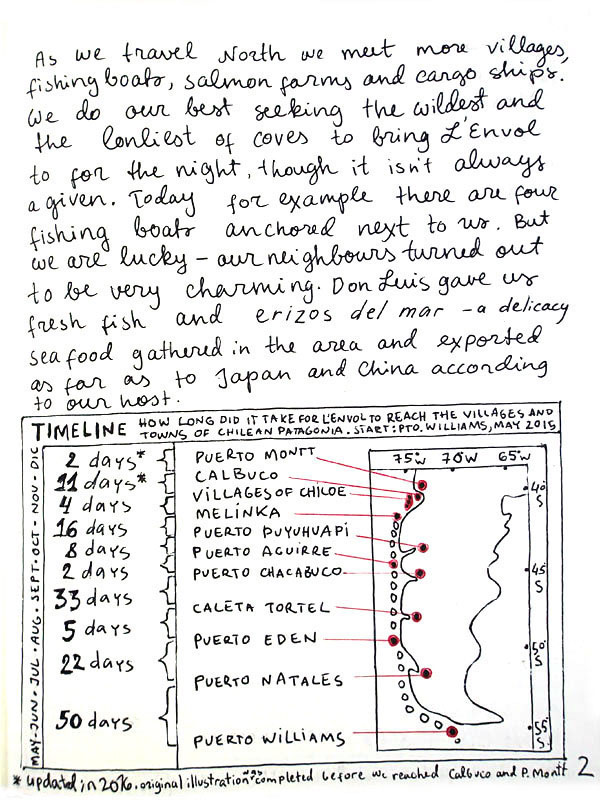 As we travel North we meet more villages,
fishing boats, salmon farms and cargo ships.
We do our best seeking the wildest and
the lonliest of coves to bring L'Envol
to for the night, though it isn't always
a given. Today for example there are four
fishing boats anchored next to us. But
we are lucky - our neighbours turned out
to be very charming. Don Luis gave us
fresh fish and erizos del mar - a delicacy
seafood gathered in the area and exported
as far as to Japan and China according
to our host.
TIMELINE HOW LONG DID IT TAKE FOR L'ENVOL TO REACH THE VILLAGES AND
TOWNS OF CHILEAN PATAGONIA. START: PTO. WILLIAMS, MAY 2015
MAY-JUN-JUL-AUG-SEPT-OCT-NOV-DIC
2 days*
11 days*
4 days
16 days
8 days
2 days
33 days
5 days
22 days
50 days
PUERTO MONTT
CALBUCO
VILLAGES OF CHILOE
MELINKA
PUERTO PUYUHUAPI
PUERTO AGUIRRE
PUERTO CHACABUCO
CALETA TORTEL
PUERTO EDEN
PUERTO NATALES
PUERTO WILLIAMS
75°W 70°W 65°W
40° S
45° S
50° S
55° S
* updated in 2016. original illustration was completed before we reached Calbuco and P. Montt 2